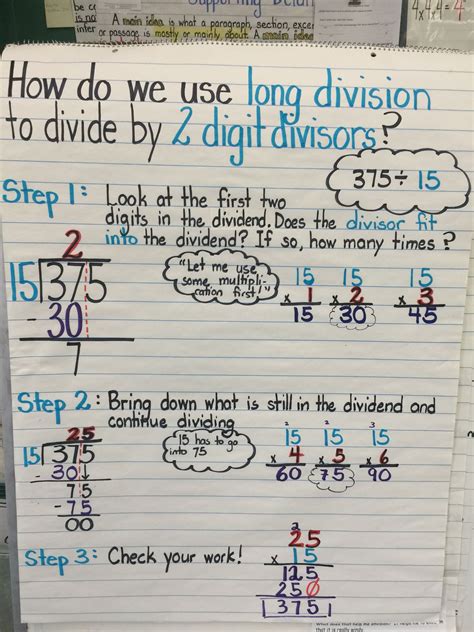 Supporting Detail
A main idea is what a paragraph, section, excer
or passage is mostly or mainly about. A main idea
How do we use long division
to divide by 2 digit divisors?
375 ÷ 15
Step 1: Look at the first two
digits in the dividend. Does the divisor fit
into the dividend? If so, how many times?
2
15 375
- 30
7
"Let me use
some multipli-
cation first!"
15 15 15
x 1 x 2 x 3
15 30 45
Step 2: Bring down what is still in the dividend and
continue dividing
25
15 375
- 30
75
- 75
00
15 has to go
into 75
2 2 3
15 15 15
x 4 x 5 x 6
60 75 90
Step 3: Check your work!
2
25
x 15
125
250
375